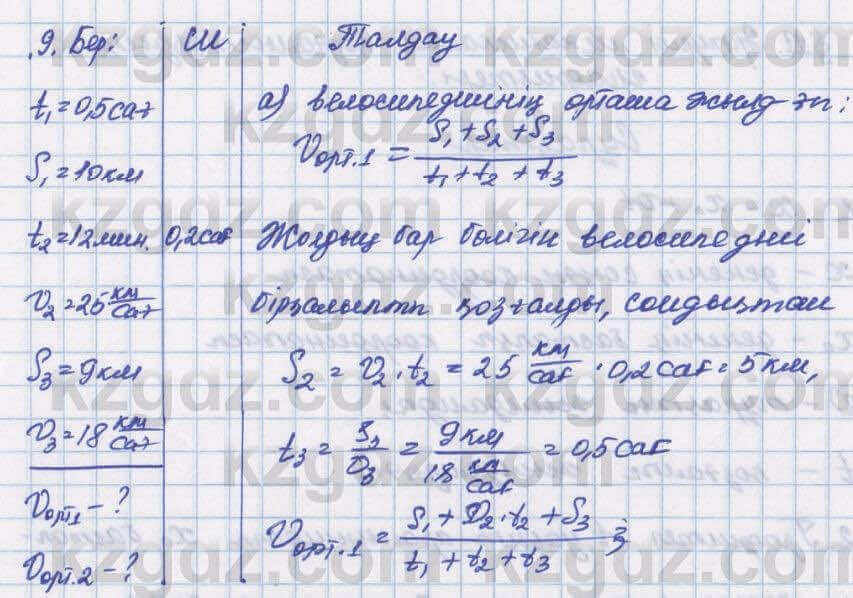 9. Бер:
СИ
Талдау
t₁=0,5сағ
S₁=10км
t₂=12мин.
0,2сағ
V₂=25 км/сағ
S₃=9км
V₃=18 км/сағ
Vорт1 - ?
Vорт.2 - ?
а) велосипедшінің орташа жылд-ғы:
Vорт.1 = (S₁+S₂+S₃)/(t₁+t₂+t₃)
Жолдың бар бөлігін велосипедші
бірқалыпты қозғалды, сондықтан
S₂ = V₂·t₂ = 25 км/сағ · 0,2сағ = 5км,
t₃ = S₃/V₃ = 9км/(18 км/сағ) = 0,5сағ
Vорт.1 = (S₁+V₂·t₂+S₃)/(t₁+t₂+t₃) ;
kzgdz.com